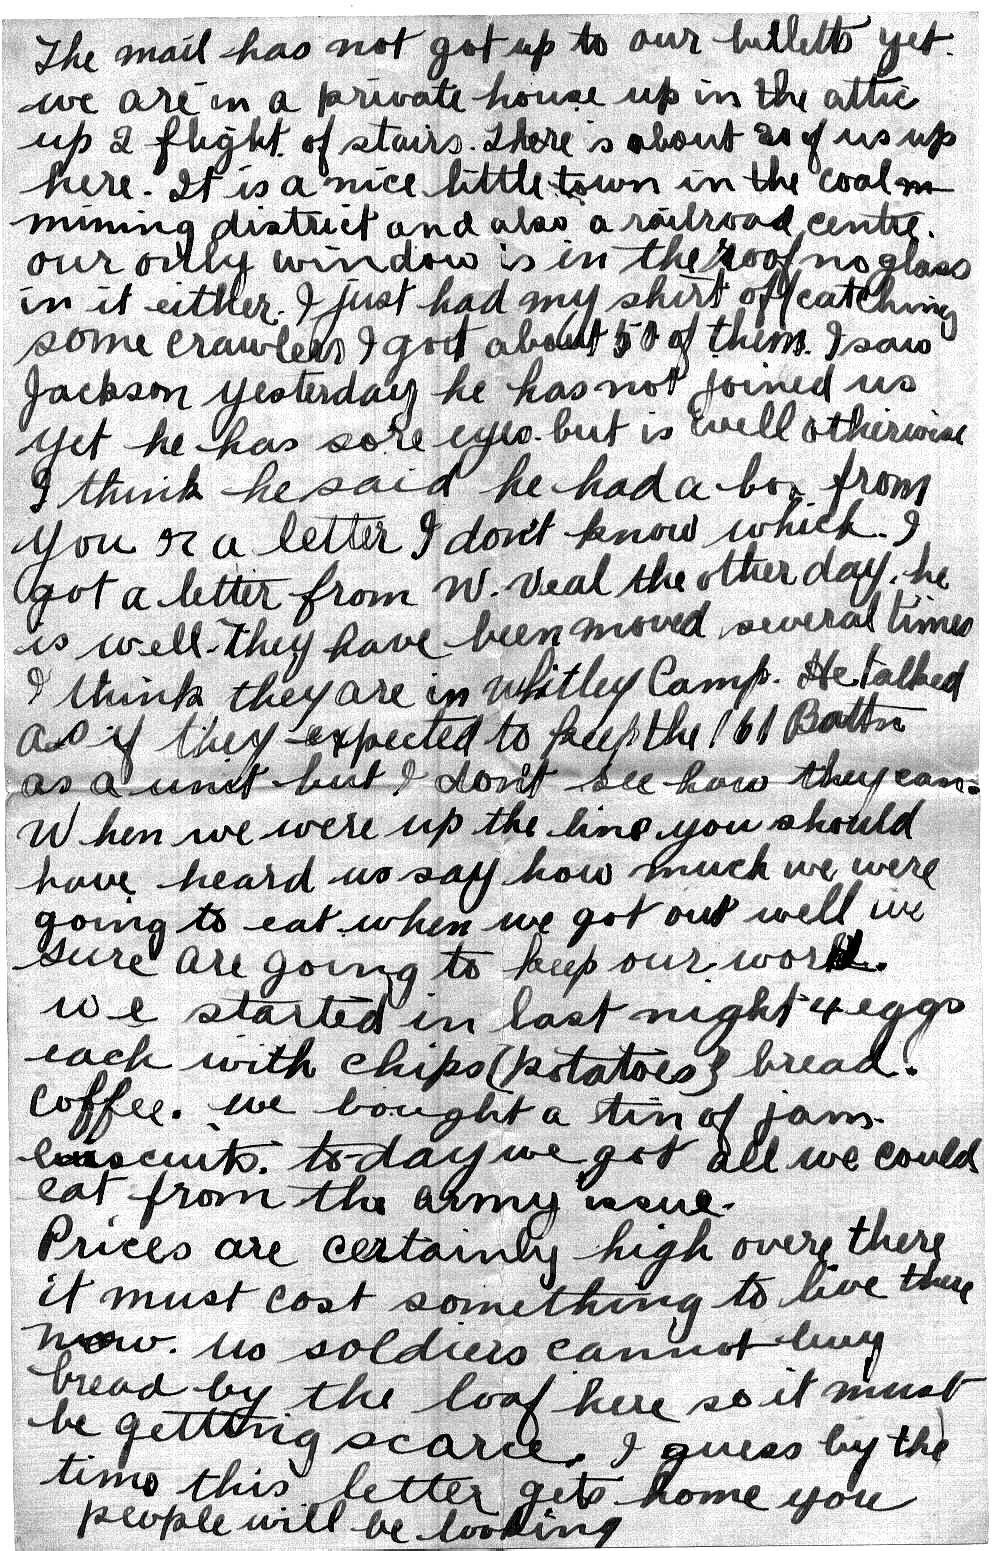 The mail has not got up to our billetts yet.
we are in a private house up in the attic
up 2 flight. of stairs. There is about 20 of us up
here. It is a nice little town in the coal m
mining district and also a railroad centre.
our only window is in the roof no glass
in it either. I just had my shirt off catching
some crawlers I got about 50 of them. I saw
Jackson yesterday he has not joined us
yet he has sore eyes. but is well otherwise
I think he said he had a box from
you or a letter I don't know which. I
got a letter from W. Veal the other day. he
is well. They have been moved several times
I think they are in Whitley Camp. He talked
as if they expected to keep the 161 Battn
as a unit but I don't see how they can.
When we were up the line you should
have heard us say how much we were
going to eat when we got out well we
sure are going to keep our word.
we started in last night 4 eggs
each with chips (potatoes) bread.
coffee. we bought a tin of jam.
to-day we got all we could
eat from the army issue.
Prices are certainly high overe there
it must cost something to live there
now. us soldiers cannot buy
bread by the loaf here so it must
be getting scarce. I guess by the
time this letter gets home you
people will be looking